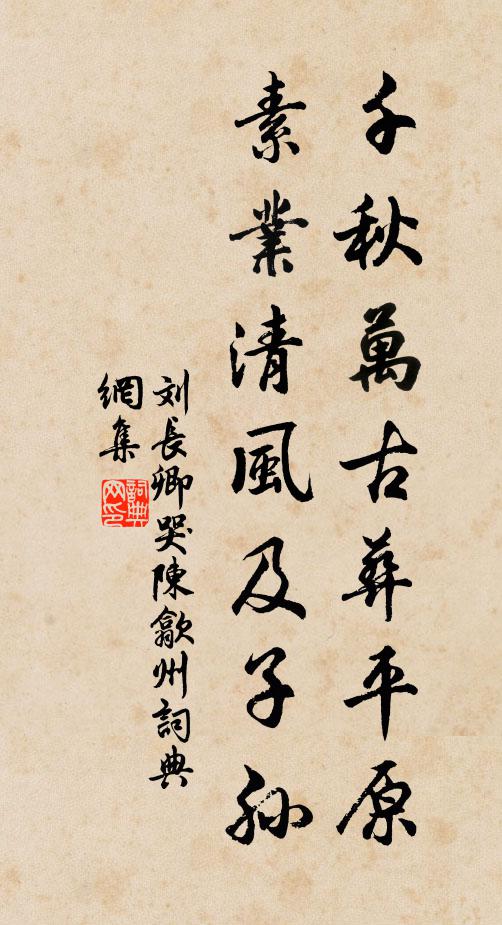 千秋萬古葬平原
素業清風及子孫
刘長卿哭陳歙州詞典
網集
詞典网印